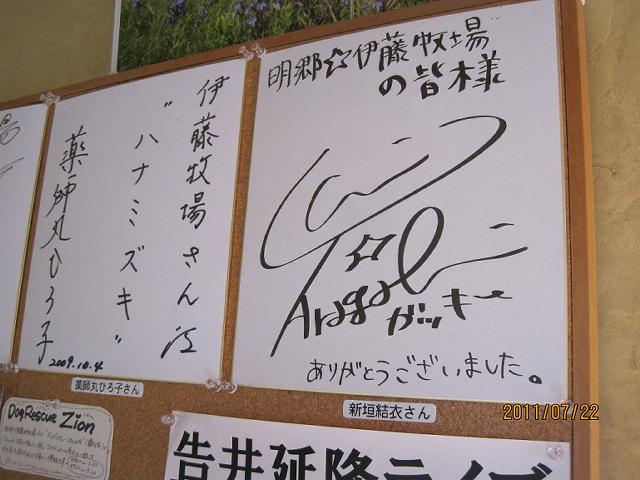 明郷☆伊藤牧場
の皆様
Aragaki
ガッキー
ありがとうございました。
新垣結衣さん
伊藤牧場さん江
"ハナミズキ"
薬師丸ひろ子
2009.10.4
薬師丸ひろ子さん
Dog Rescue Zion
告井延隆ライブ
2011/07/22